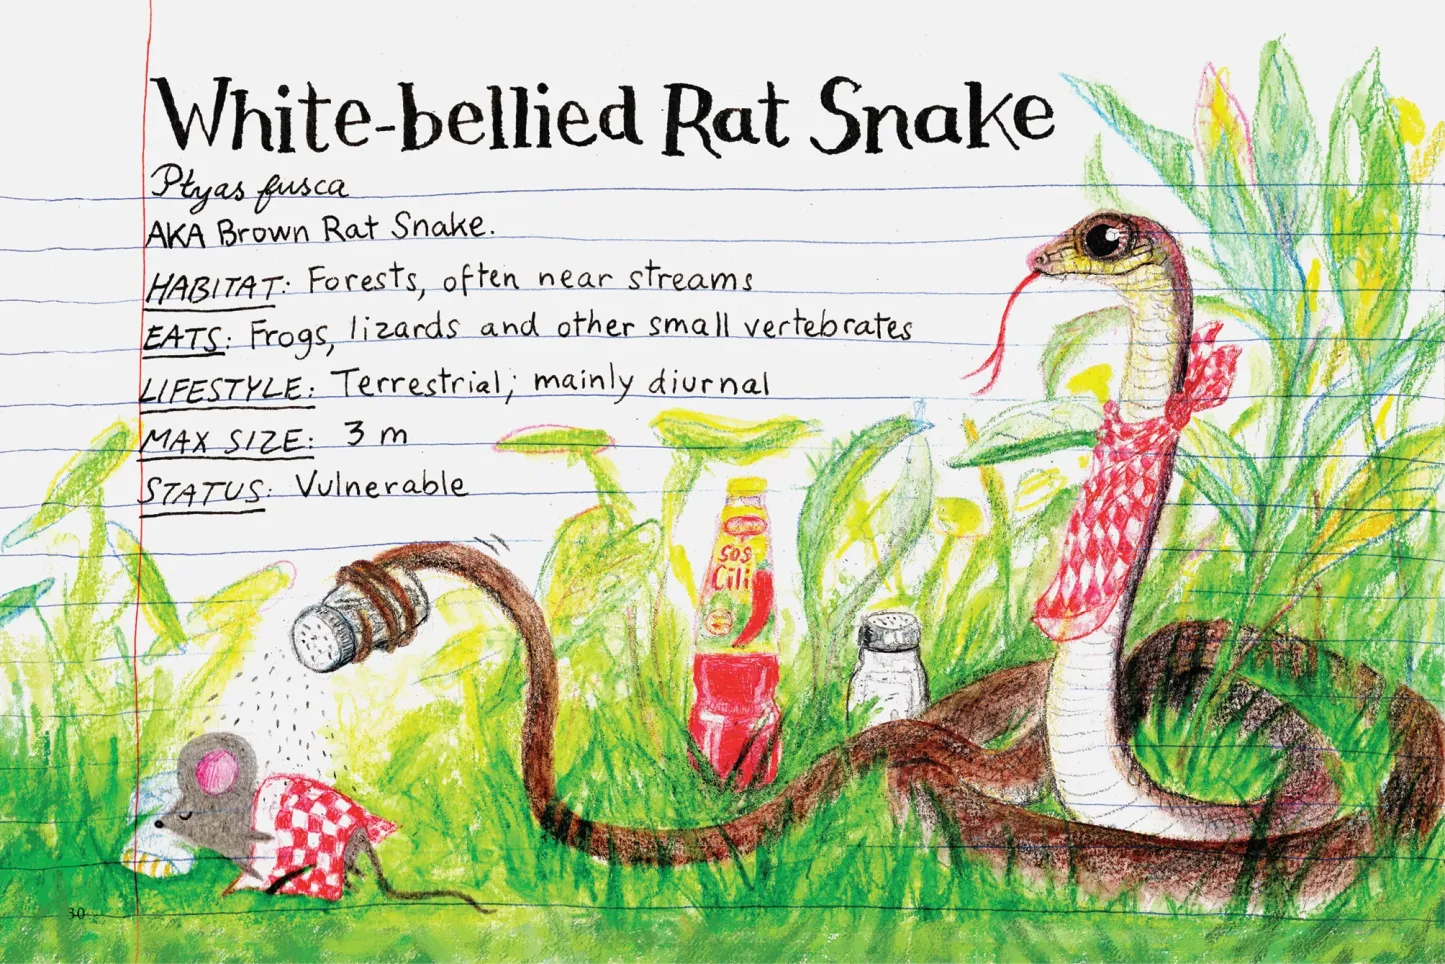 White-bellied Rat Snake
Ptyas fusca
AKA Brown Rat Snake.
HABITAT: Forests, often near streams
EATS: Frogs, lizards and other small vertebrates
LIFESTYLE: Terrestrial; mainly diurnal
MAX SIZE: 3 m
STATUS: Vulnerable
SOS
Cili
30